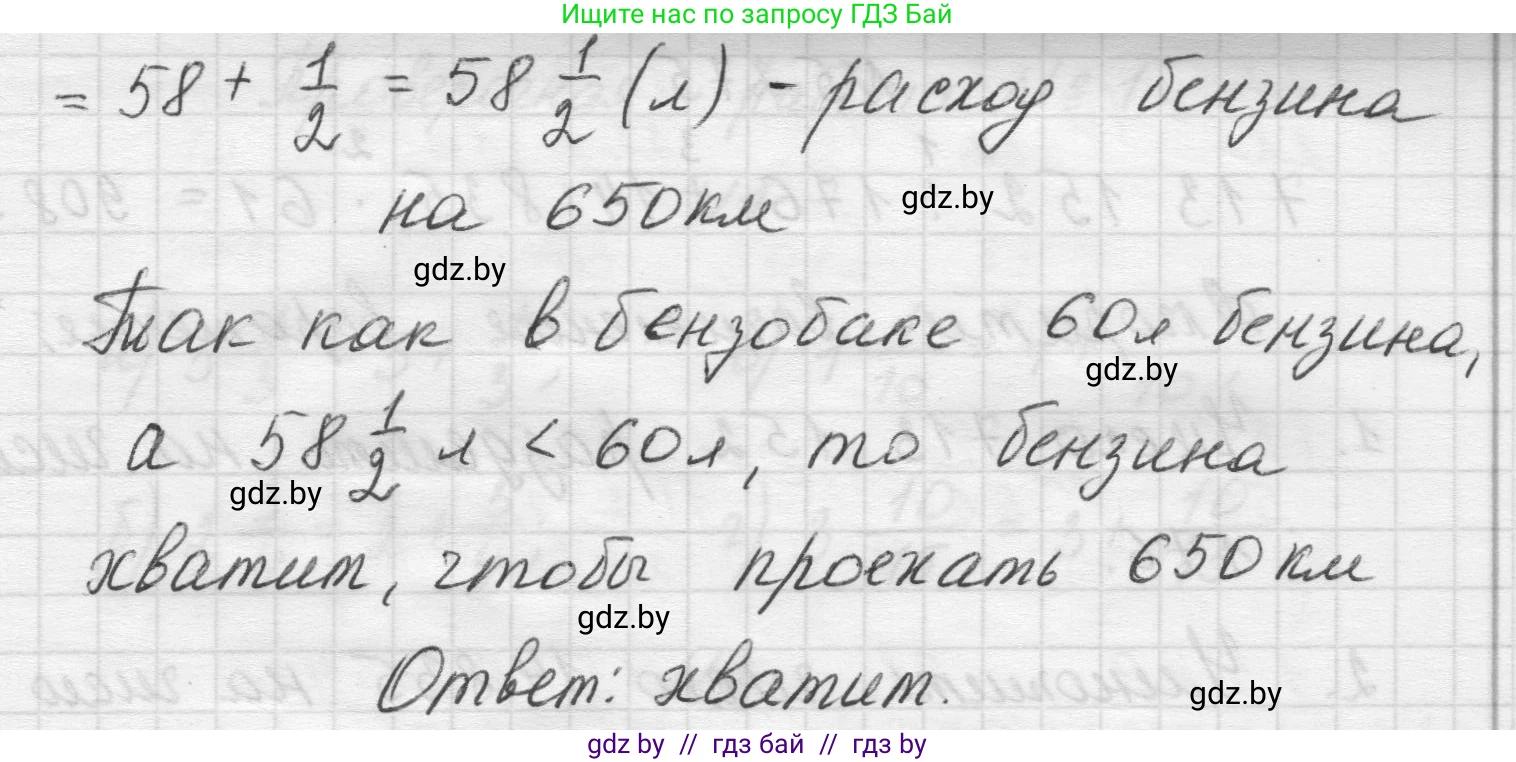 Ищите нас по запросу ГДЗ Бай
= 58 + 1/2 = 58 1/2 (л) - расход бензина
на 650 км
gdz.by
gdz.by
Так как в бензобаке 60 л бензина,
gdz.by
а 58 1/2 л < 60 л, то бензина
gdz.by
хватит, чтобы проехать 650 км
gdz.by
Ответ: хватит.
gdz.by
gdz by // гдз бай // гдз by